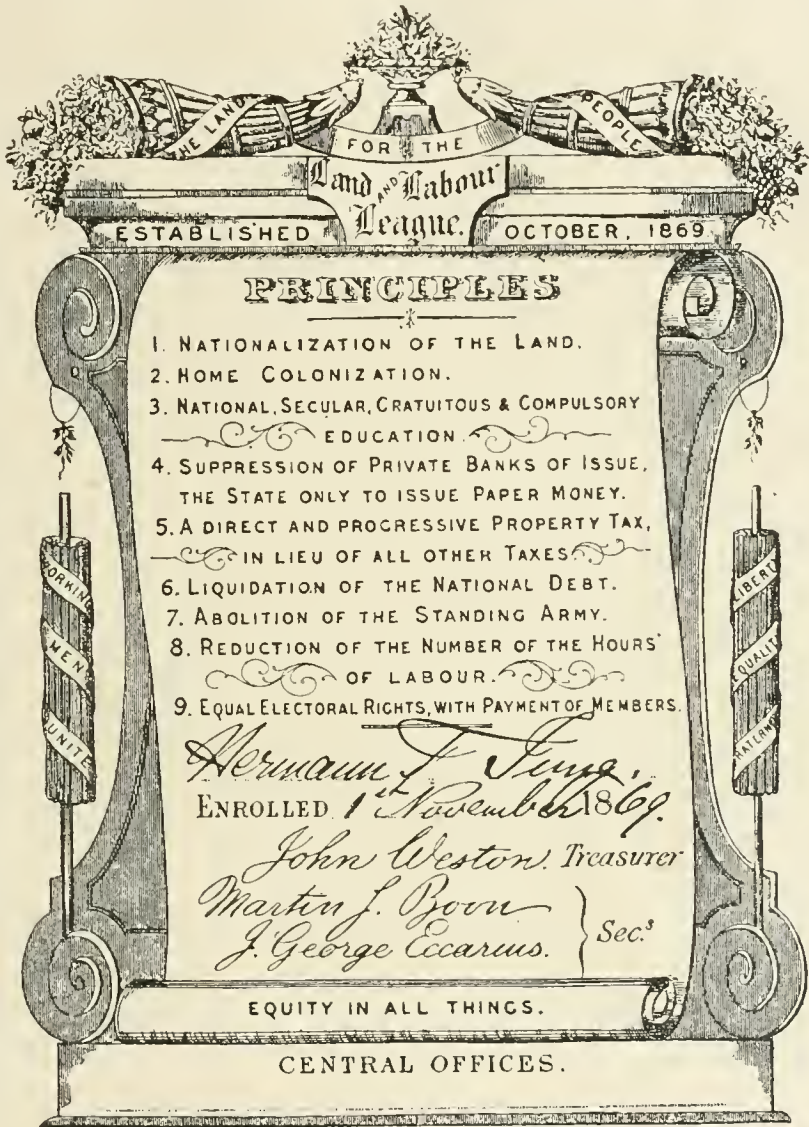 THE LAND
FOR THE
PEOPLE
Land AND Labour
League.
ESTABLISHED OCTOBER, 1869
PRINCIPLES
1. NATIONALIZATION OF THE LAND.
2. HOME COLONIZATION.
3. NATIONAL, SECULAR, GRATUITOUS & COMPULSORY
EDUCATION.
4. SUPPRESSION OF PRIVATE BANKS OF ISSUE,
THE STATE ONLY TO ISSUE PAPER MONEY.
5. A DIRECT AND PROGRESSIVE PROPERTY TAX,
IN LIEU OF ALL OTHER TAXES
6. LIQUIDATION OF THE NATIONAL DEBT.
7. ABOLITION OF THE STANDING ARMY.
8. REDUCTION OF THE NUMBER OF THE HOURS'
OF LABOUR.
9. EQUAL ELECTORAL RIGHTS, WITH PAYMENT OF MEMBERS.
WORKING
MEN
UNITE
LIBERTY
EQUALITY
Hermann F. Jung.
ENROLLED 1st November 1869.
John Weston. Treasurer
Martin J. Boon
J. George Eccarius. } Sec.s
EQUITY IN ALL THINGS.
CENTRAL OFFICES.